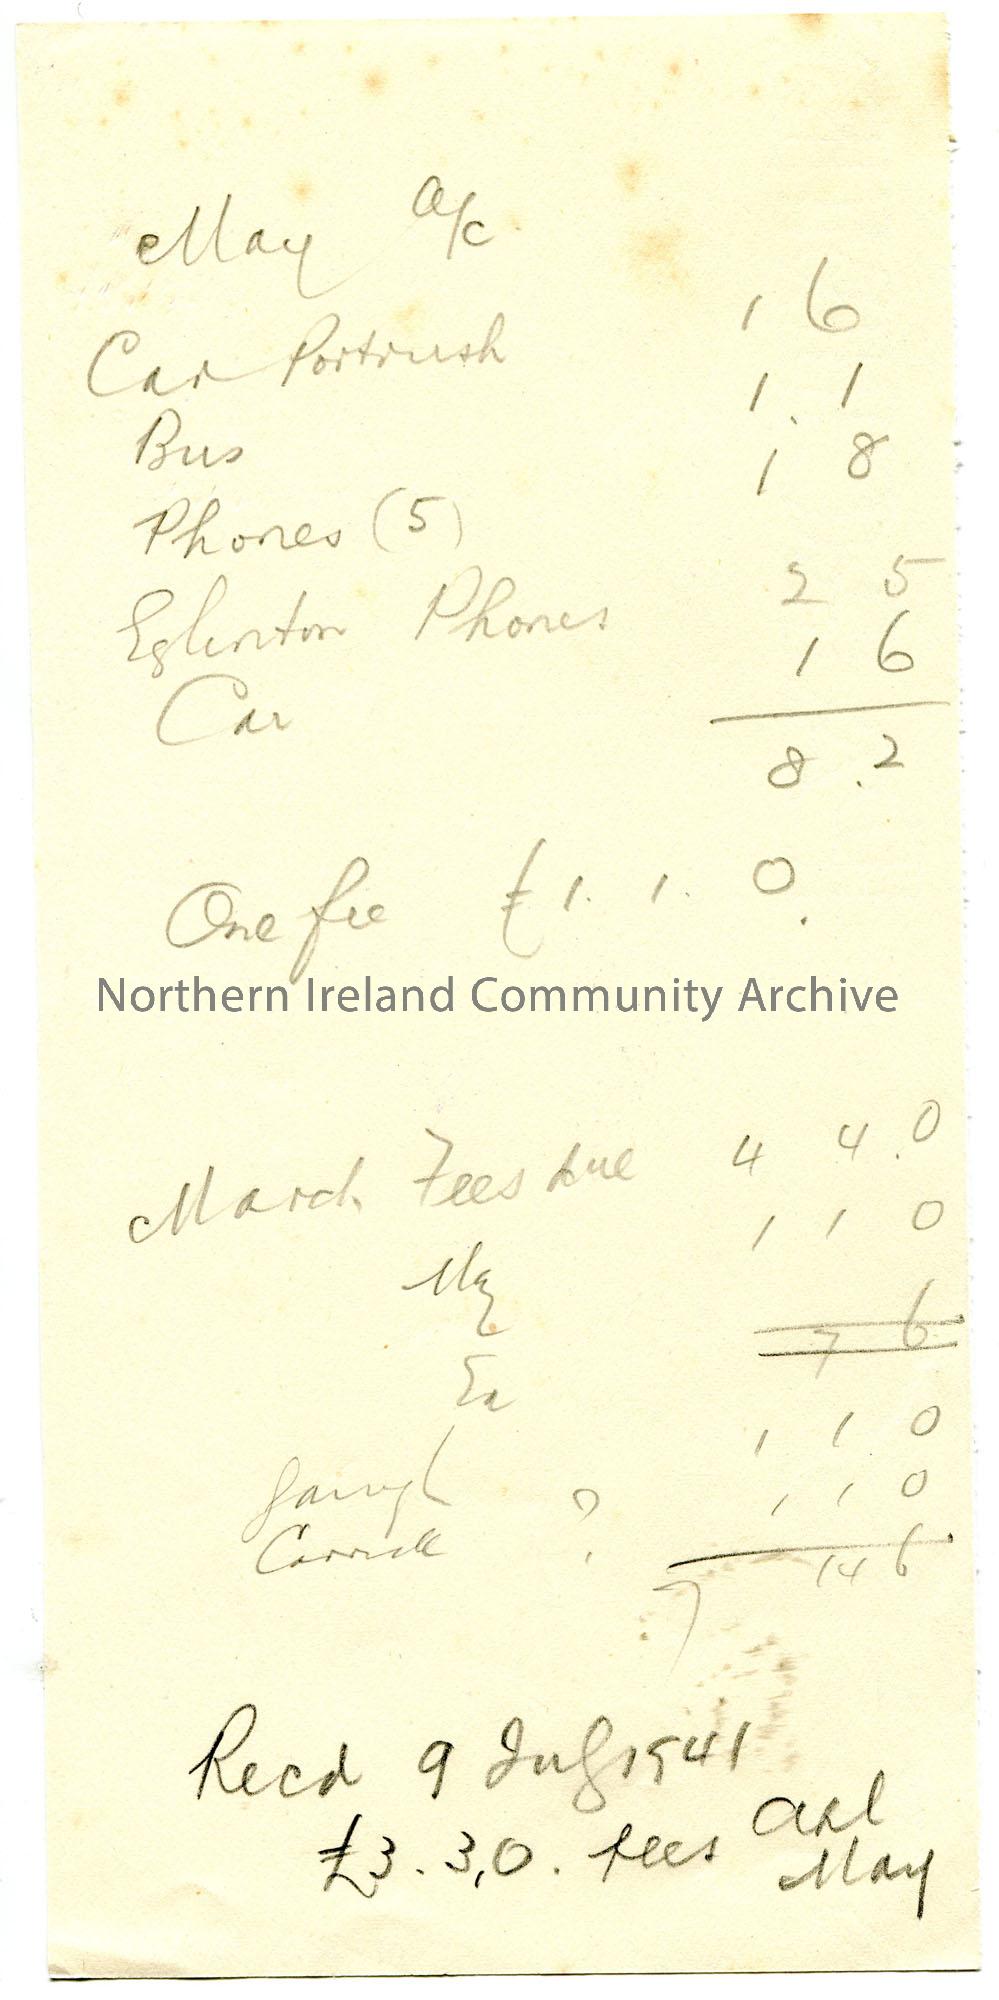 May a/c
Car Portrush 1 6
Bus 1 . 1
Phones (5) 1 8
Eglinton Phones 2 5
Car 1 6
8 . 2
One fee £1. 1. 0.
Northern Ireland Community Archive
March Fees due 4 4 . 0
May 1 1 0
Ex 7 6
Garvagh 1 1 0
Carrick ? 1 1 0
7 14 6
Recd 9 July 1941
£3. 3, 0. fees
May